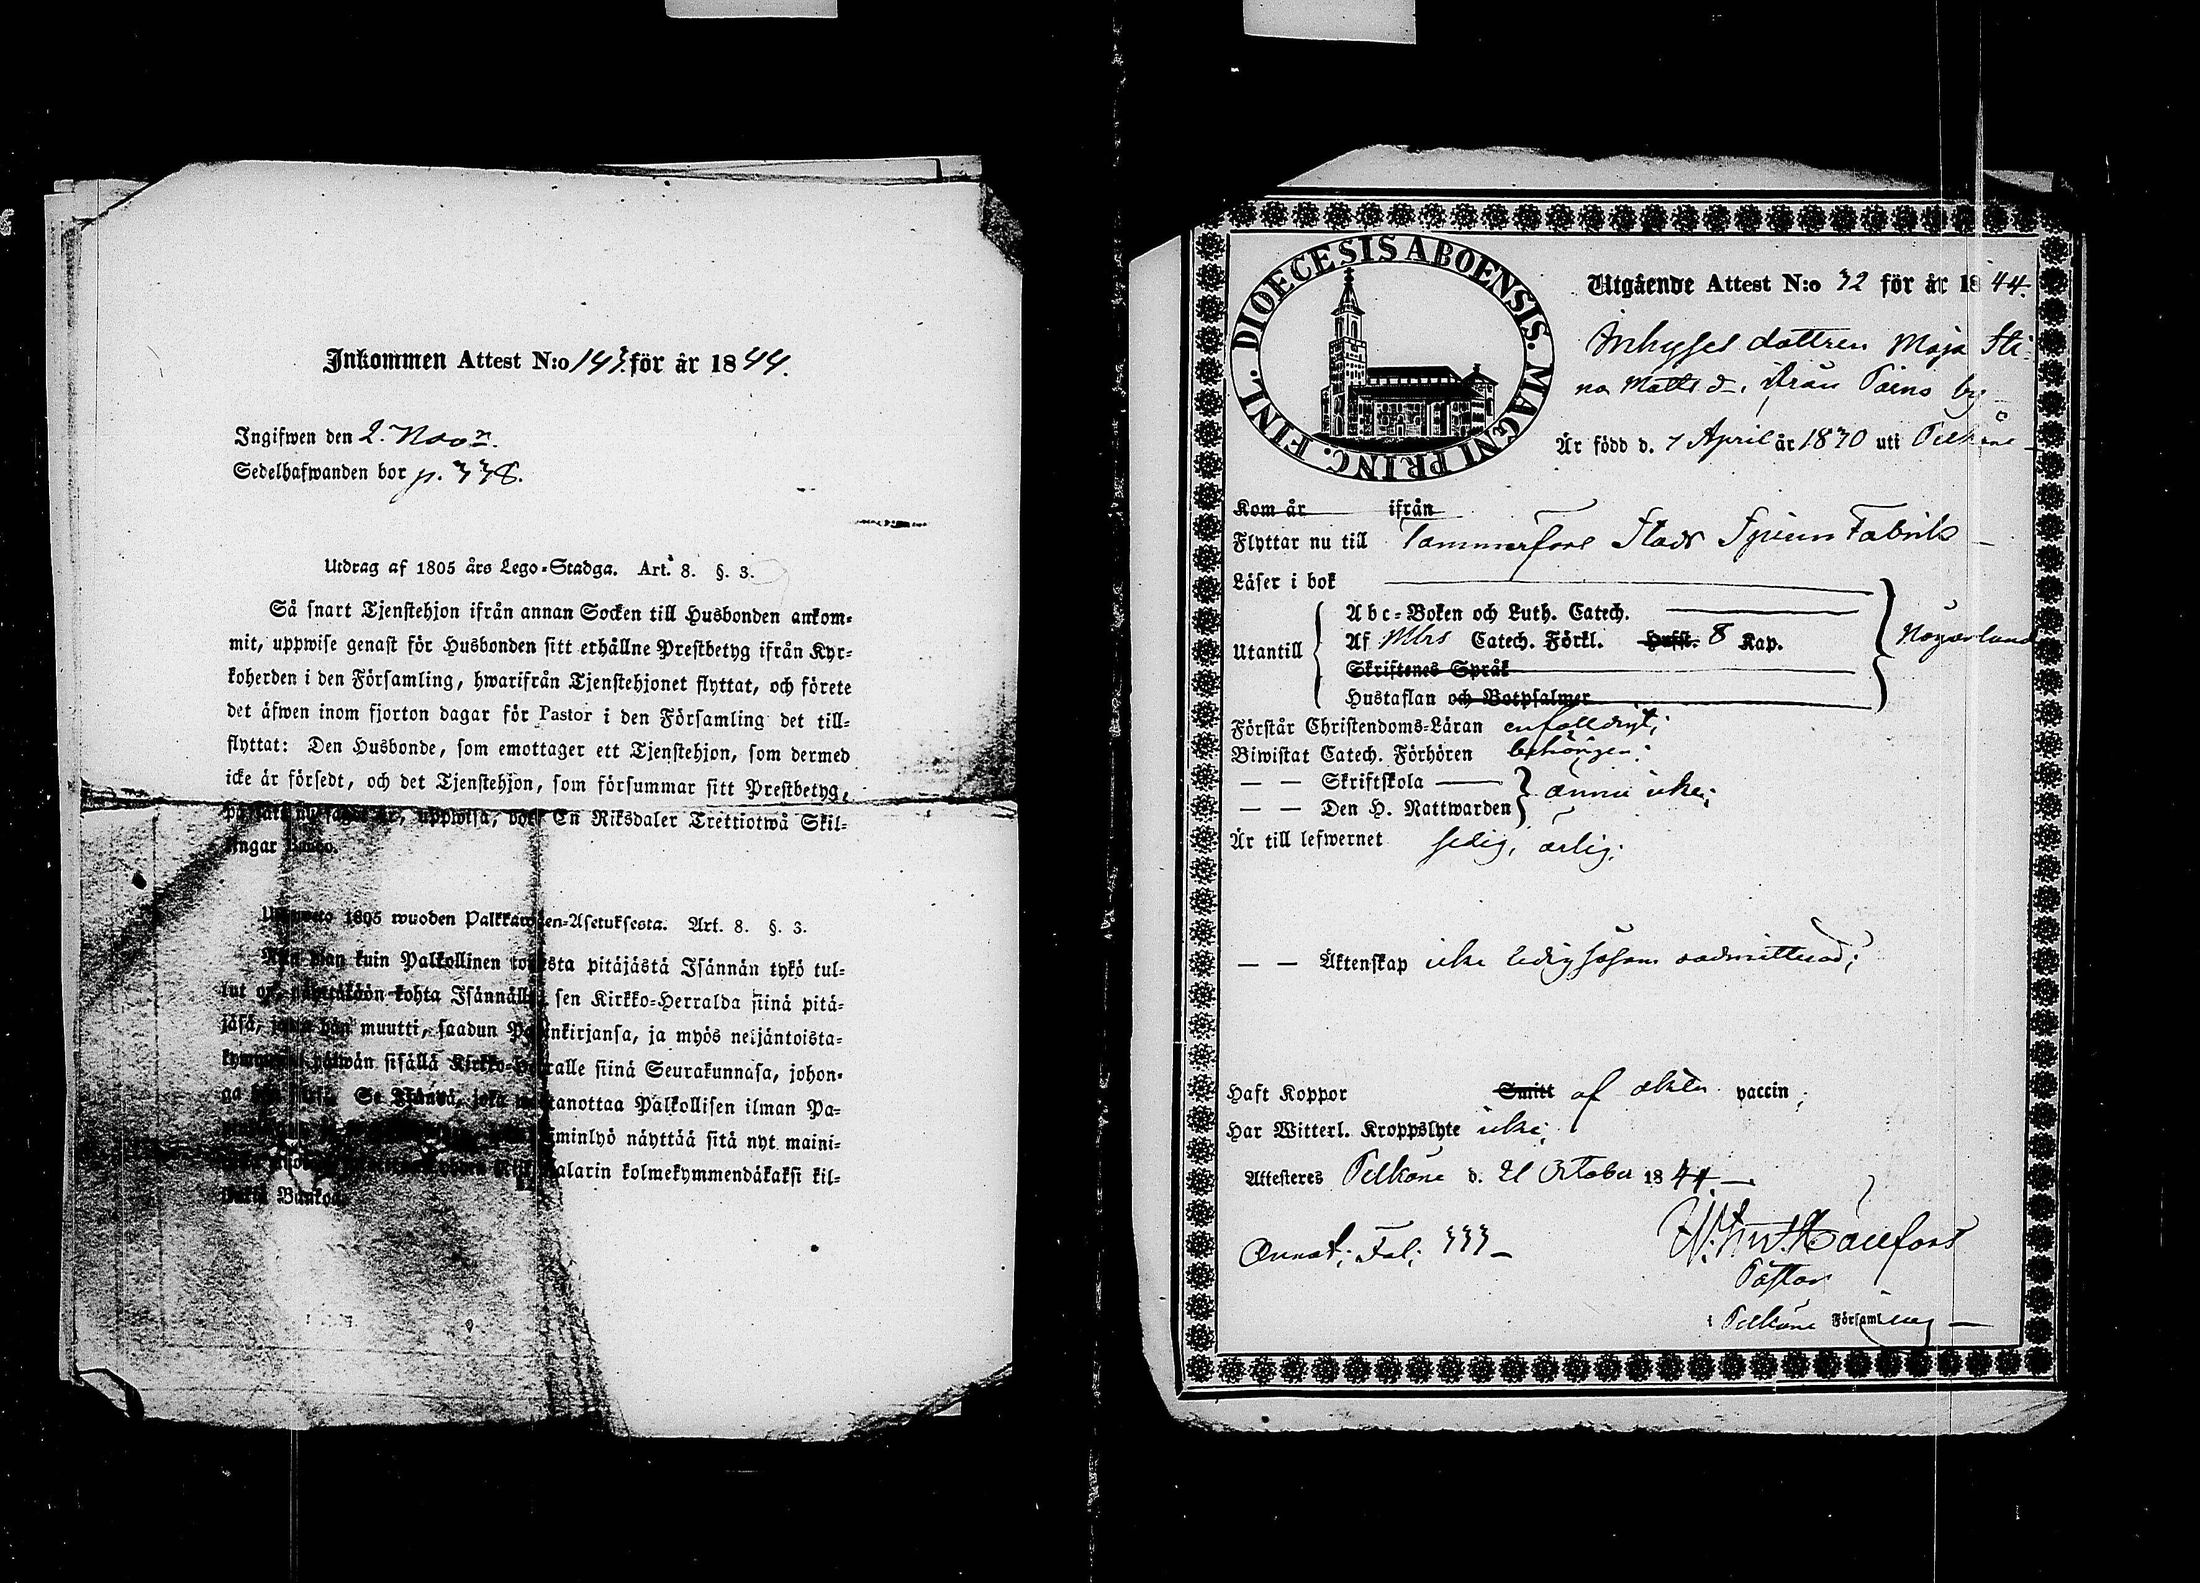 Inkommen Attest N:o 143. för år 1844.
Ingifwen den 2. Nov:r.
Sedelhafwanden bor p. 338.
Utdrag af 1805 års Lego-Stadga. Art. 8. §. 3.
Så snart Tjenstehjon ifrån annan Socken till Husbonden ankom-
mit, uppwise genast för Husbonden sitt erhållne Prestbetyg ifrån Kyr-
koherden i den Församling, hwarifrån Tjenstehjonet flyttat, och förete
det äfwen inom fjorton dagar för Pastor i den Församling det till-
flyttat: Den Husbonde, som emottager ett Tjenstehjon, som dermed
icke är försedt, och det Tjenstehjon, som försummar sitt Prestbetyg,
uppwisa, En Riksdaler Trettiotwå Skil-
lingar Banco.
1805 wuoden Palkkawäen-Asetuksesta. Art. 8. §. 3.
kuin Palkollinen toisesta pitäjästä Isännän tykö tul-
lut on, näyttäköön kohta Isännälle sen Kirkko-Herralda siinä pitä-
jäsä, hän muutti, saadun Papinkirjansa, ja myös neljäntoista-
päiwän sisällä Kirkko-Herralle siinä Seurakunnasa, johon-
ga Se Isändä, joka wastanottaa Palkollisen ilman Pa-
laiminlyö näyttää sitä nyt maini-
Riksdalarin kolmekymmendäkaksi kil-
Bankoa.
DIOECESIS ABOENSIS. MAGNI PRINC. FINL.
Utgående Attest N:o 32 för år 1844.
Inhyses dottren Maja Sti-
na Matts d., från Päino by
Är född d. 7 April år 1830 uti Pelkäne
Kom år ifrån
Flyttar nu till Tammerfors Stads Spinn Fabrik
Läser i bok
Utantill
Abc-Boken och Luth. Catech.
Af Mbrs Catech. Förkl. Husst. 8 Kap.
Skriftenes Språk
Hustaflan och Botpsalmer
Nöjaktand
Förstår Christendoms-Läran enfalldigt;
Biwistat Catech. Förhören behörigen;
— — Skriftskola —
— — Den H. Nattwarden
ännu icke;
Är till lefwernet sedig, ärlig;
— — Äktenskap icke ledig såsom oadmitterad;
Haft Koppor Smitt af äkta vaccin;
Har Witterl. Kroppslyte icke;
Attesteres Pelkäne d. 21 October 1844.
Annot; Fol; 333
Pastor
i Pelkäne Församling